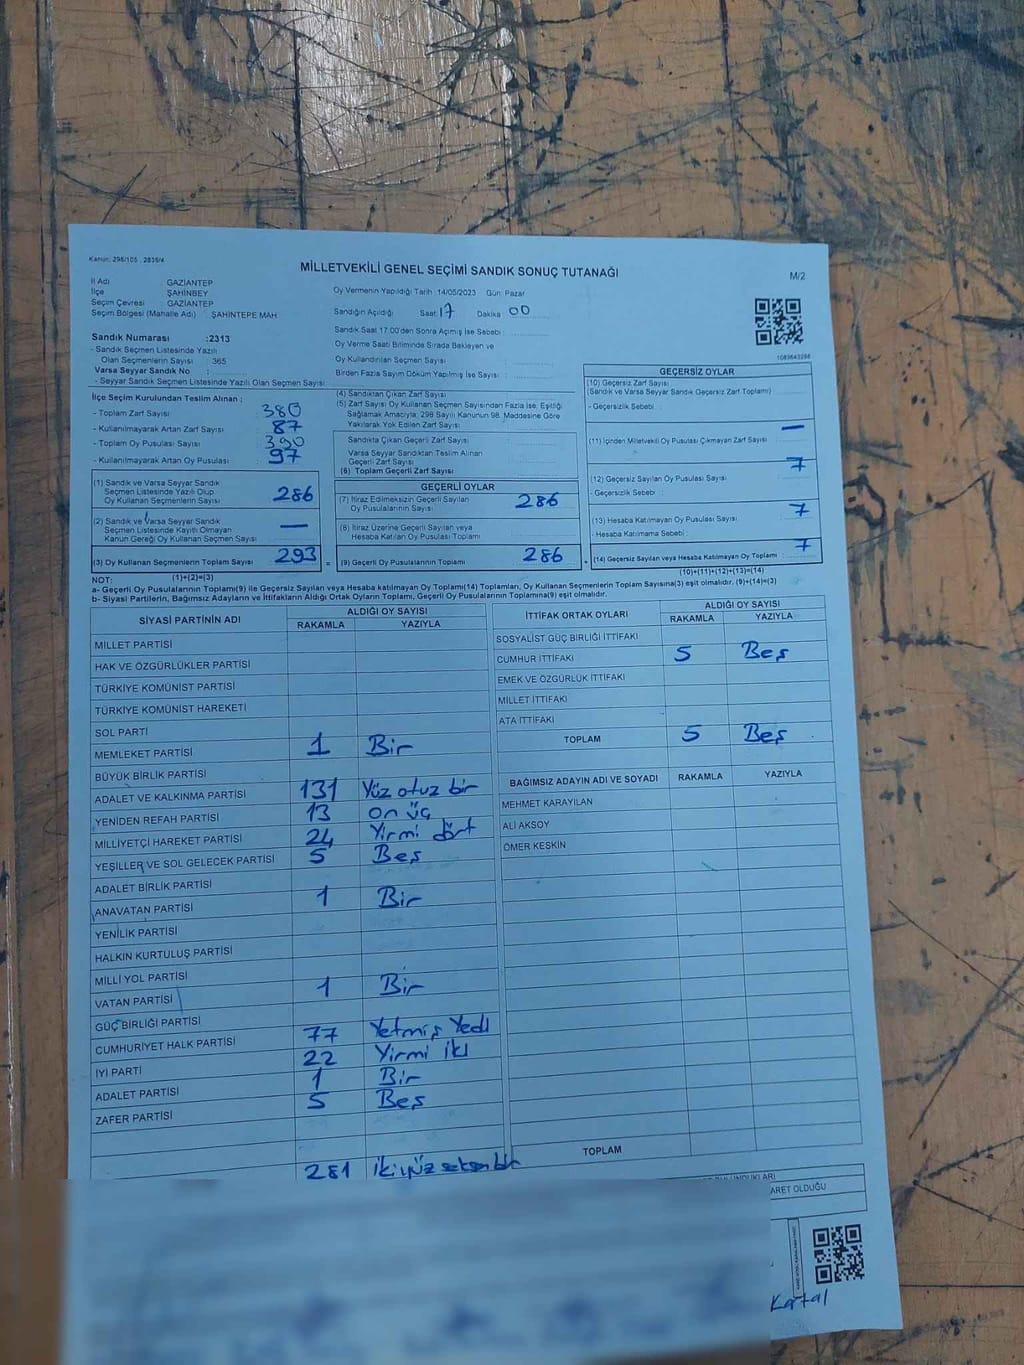 Kanun: 298/105 , 2839/4
MİLLETVEKİLİ GENEL SEÇİMİ SANDIK SONUÇ TUTANAĞI
M/2
İl Adı GAZİANTEP
İlçe ŞAHİNBEY
Seçim Çevresi GAZİANTEP
Seçim Bölgesi (Mahalle Adı) : ŞAHİNTEPE MAH
Oy Vermenin Yapıldığı Tarih :14/05/2023 Gün: Pazar
Sandığın Açıldığı Saat: 17 Dakika 00
Sandık Saat 17:00'den Sonra Açılmış İse Sebebi :
Oy Verme Saati Bitiminde Sırada Bekleyen ve
Oy Kullandırılan Seçmen Sayısı :
Birden Fazla Sayım Döküm Yapılmış İse Sayısı :
Sandık Numarası :2313
- Sandık Seçmen Listesinde Yazılı
Olan Seçmenlerin Sayısı 365
Varsa Seyyar Sandık No :
- Seyyar Sandık Seçmen Listesinde Yazılı Olan Seçmen Sayısı
İlçe Seçim Kurulundan Teslim Alınan ;
- Toplam Zarf Sayısı : 380
- Kullanılmayarak Artan Zarf Sayısı : 87
- Toplam Oy Pusulası Sayısı : 390
- Kullanılmayarak Artan Oy Pusulası : 97
(1) Sandık ve Varsa Seyyar Sandık
Seçmen Listesinde Yazılı Olup
Oy Kullanan Seçmenlerin Sayısı 286
(2) Sandık ve Varsa Seyyar Sandık
Seçmen Listesinde Kayıtlı Olmayan
Kanun Gereği Oy Kullanan Seçmen Sayısı —
(3) Oy Kullanan Seçmenlerin Toplam Sayısı 293
(1)+(2)=(3)
(4) Sandıktan Çıkan Zarf Sayısı
(5) Zarf Sayısı Oy Kullanan Seçmen Sayısından Fazla İse, Eşitliği
Sağlamak Amacıyla; 298 Sayılı Kanunun 98. Maddesine Göre
Yakılarak Yok Edilen Zarf Sayısı :
Sandıkta Çıkan Geçerli Zarf Sayısı
Varsa Seyyar Sandıktan Teslim Alınan
Geçerli Zarf Sayısı
(6) Toplam Geçerli Zarf Sayısı
GEÇERLİ OYLAR
(7) İtiraz Edilmeksizin Geçerli Sayılan
Oy Pusulalarının Sayısı: 286
(8) İtiraz Üzerine Geçerli Sayılan veya
Hesaba Katılan Oy Pusulası Toplamı
(9) Geçerli Oy Pusulalarının Toplamı 286
1089643298
GEÇERSİZ OYLAR
(10) Geçersiz Zarf Sayısı
(Sandık ve Varsa Seyyar Sandık Geçersiz Zarf Toplamı) :
- Geçersizlik Sebebi : —
(11) İçinden Milletvekili Oy Pusulası Çıkmayan Zarf Sayısı : 7
(12) Geçersiz Sayılan Oy Pusulası Sayısı :
- Geçersizlik Sebebi : 7
(13) Hesaba Katılmayan Oy Pusulası Sayısı :
- Hesaba Katılmama Sebebi :
(14) Geçersiz Sayılan veya Hesaba Katılmayan Oy Toplamı : 7
(10)+(11)+(12)+(13)=(14)
NOT:
a- Geçerli Oy Pusulalarının Toplamı(9) ile Geçersiz Sayılan veya Hesaba katılmayan Oy Toplamı(14) Toplamları, Oy Kullanan Seçmenlerin Toplam Sayısına(3) eşit olmalıdır. (9)+(14)=(3)
b- Siyasi Partilerin, Bağımsız Adayların ve İttifakların Aldığı Ortak Oyların Toplamı, Geçerli Oy Pusulalarının Toplamına(9) eşit olmalıdır.
SİYASİ PARTİNİN ADI ALDIĞI OY SAYISI
RAKAMLA YAZIYLA
MİLLET PARTİSİ
HAK VE ÖZGÜRLÜKLER PARTİSİ
TÜRKİYE KOMÜNİST PARTİSİ
TÜRKİYE KOMÜNİST HAREKETİ
SOL PARTİ
MEMLEKET PARTİSİ 1 Bir
BÜYÜK BİRLİK PARTİSİ
ADALET VE KALKINMA PARTİSİ 131 Yüz otuz bir
YENİDEN REFAH PARTİSİ 13 on üç
MİLLİYETÇİ HAREKET PARTİSİ 24 Yirmi dört
YEŞİLLER VE SOL GELECEK PARTİSİ 5 Beş
ADALET BİRLİK PARTİSİ
ANAVATAN PARTİSİ 1 Bir
YENİLİK PARTİSİ
HALKIN KURTULUŞ PARTİSİ
MİLLİ YOL PARTİSİ
VATAN PARTİSİ 1 Bir
GÜÇ BİRLİĞİ PARTİSİ
CUMHURİYET HALK PARTİSİ 77 Yetmiş Yedi
İYİ PARTİ 22 Yirmi iki
ADALET PARTİSİ 1 Bir
ZAFER PARTİSİ 5 Beş
281 ikiyüz seksen bir
İTTİFAK ORTAK OYLARI ALDIĞI OY SAYISI
RAKAMLA YAZIYLA
SOSYALİST GÜÇ BİRLİĞİ İTTİFAKI
CUMHUR İTTİFAKI 5 Beş
EMEK VE ÖZGÜRLÜK İTTİFAKI
MİLLET İTTİFAKI
ATA İTTİFAKI
TOPLAM 5 Beş
BAĞIMSIZ ADAYIN ADI VE SOYADI RAKAMLA YAZIYLA
MEHMET KARAYILAN
ALİ AKSOY
ÖMER KESKİN
TOPLAM
ARET OLDUĞU
Kartal